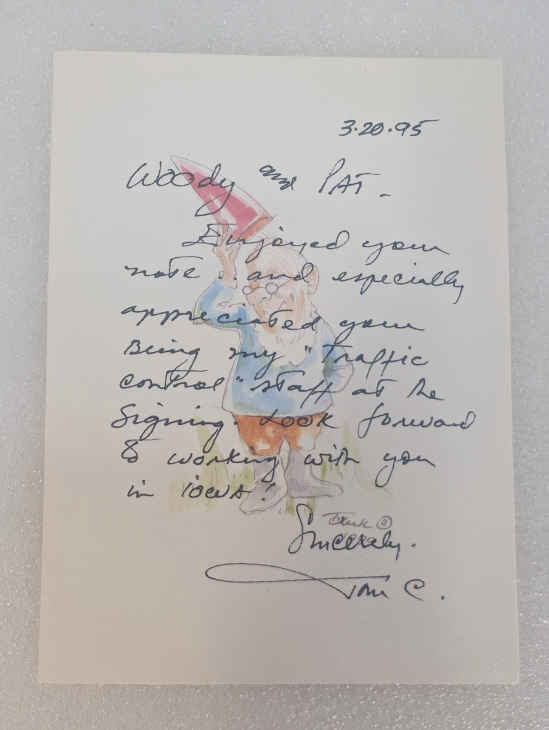 3·20·95
Woody and PAT -
Enjoyed your
note .. and especially
appreciated your
Being my "traffic
control" staff at the
Signing. Look forward
to working with you
in iowa!
Sincerely.
Tom C.